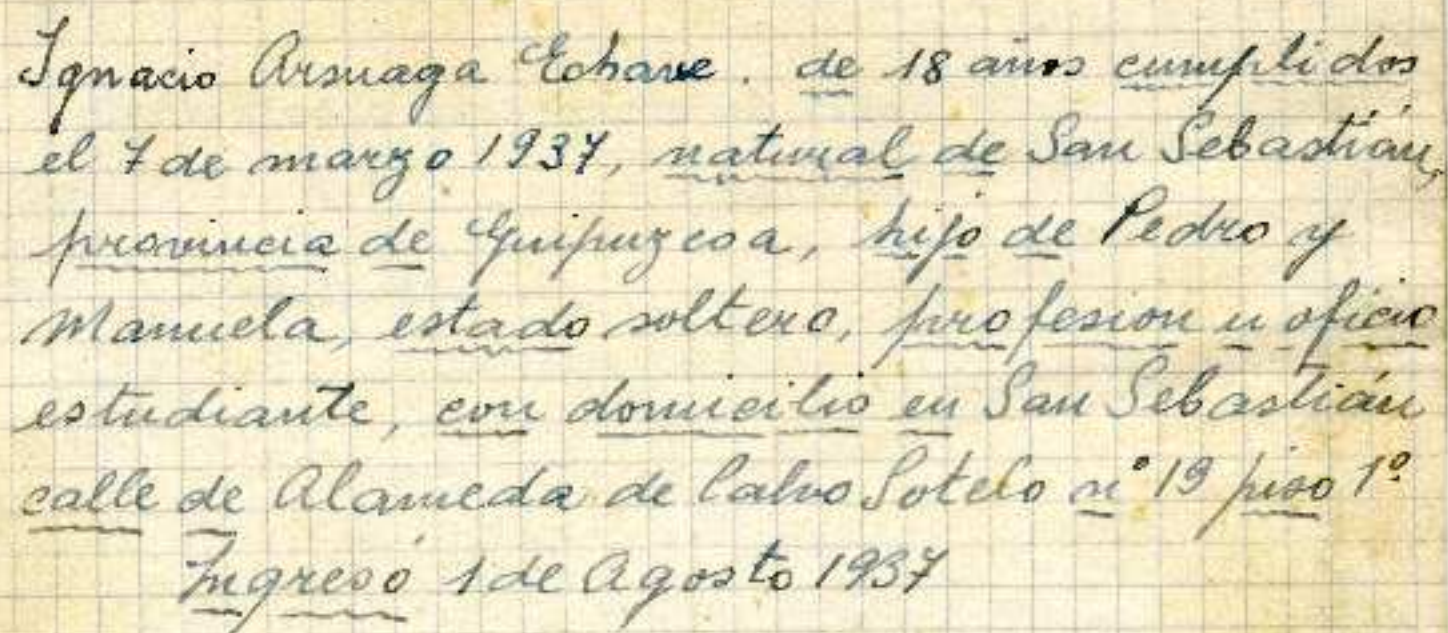 Ignacio Arsuaga Echave. de 18 años cumplidos
el 7 de marzo 1937, natural de San Sebastián,
provincia de Guipuzcoa, hijo de Pedro y
Manuela, estado soltero, profesion u oficio
estudiante, con domicilio en San Sebastián
calle de Alameda de Calvo Sotelo nº 19 piso 1º
Ingresó 1 de Agosto 1937